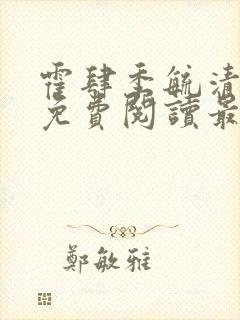 霍肆季毓清
免費閱讀最
鄭敏雅